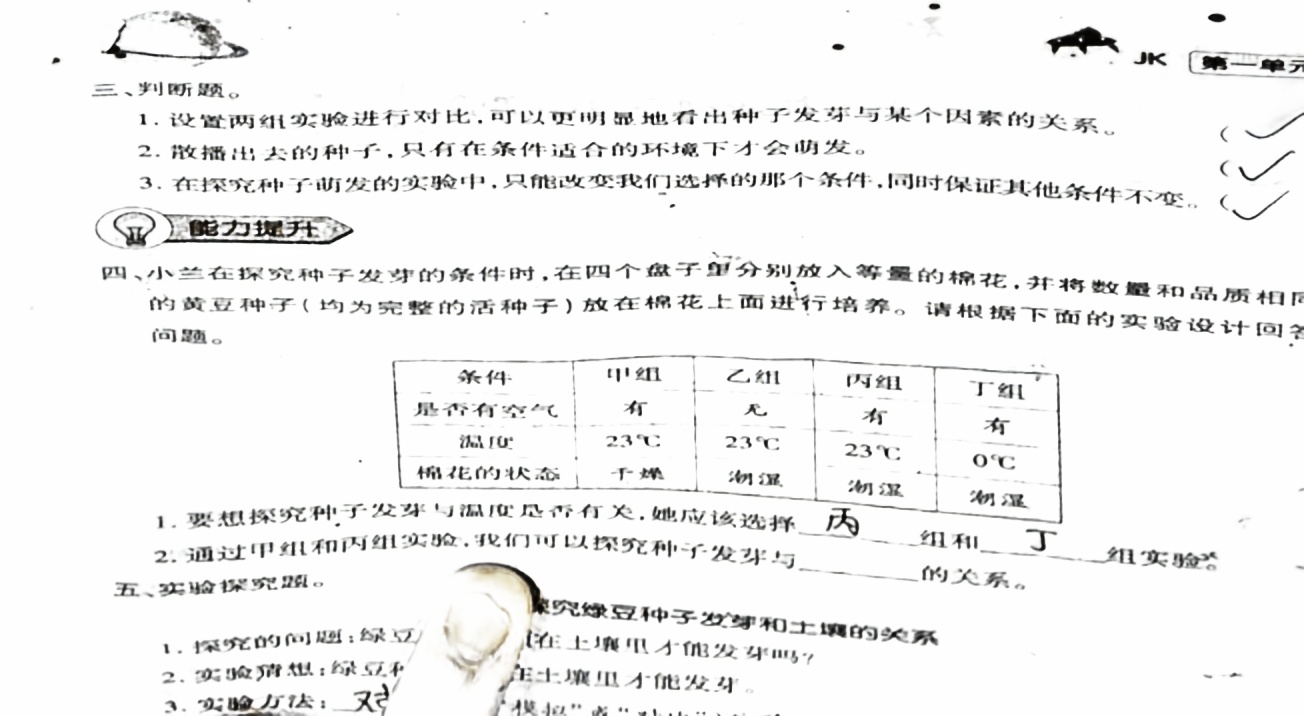 JK 第一单元
三、判断题。
1. 设置两组实验进行对比,可以更明显地看出种子发芽与某个因素的关系。 ( ✓
2. 散播出去的种子,只有在条件适合的环境下才会萌发。 ( ✓
3. 在探究种子萌发的实验中,只能改变我们选择的那个条件,同时保证其他条件不变。 ( ✓
能力提升
四、小兰在探究种子发芽的条件时,在四个盘子里分别放入等量的棉花,并将数量和品质相同
的黄豆种子(均为完整的活种子)放在棉花上面进行培养。请根据下面的实验设计回答
问题。
条件 甲组 乙组 丙组 丁组
是否有空气 有 无 有 有
温度 23℃ 23℃ 23℃ 0℃
棉花的状态 干燥 潮湿 潮湿 潮湿
1. 要想探究种子发芽与温度是否有关,她应该选择 丙 组和 丁 组实验。
2. 通过甲组和丙组实验,我们可以探究种子发芽与 的关系。
五、实验探究题。
探究绿豆种子发芽和土壤的关系
1. 探究的问题:绿豆 在土壤里才能发芽吗?
2. 实验猜想:绿豆种 在土壤里才能发芽。
3. 实验方法: 对 "模拟"或"对比"